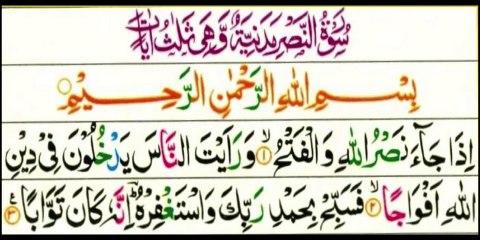 سُوْرَةُ النَّصْرِ مَدَنِيَّةٌ وَّهِىَ ثَلٰثُ اٰيَاتٍ
بِسْمِ اللّٰهِ الرَّحْمٰنِ الرَّحِيْمِ
اِذَا جَآءَ نَصْرُ اللّٰهِ وَالْفَتْحُ ۙ‏﴿۱﴾ وَرَاَيْتَ النَّاسَ يَدْخُلُوْنَ فِىْ دِيْنِ
اللّٰهِ اَفْوَاجًا ۙ‏﴿۲﴾ فَسَبِّحْ بِحَمْدِ رَبِّكَ وَاسْتَغْفِرْهُ ؕ اِنَّهٗ كَانَ تَوَّابًا ﴿۳﴾